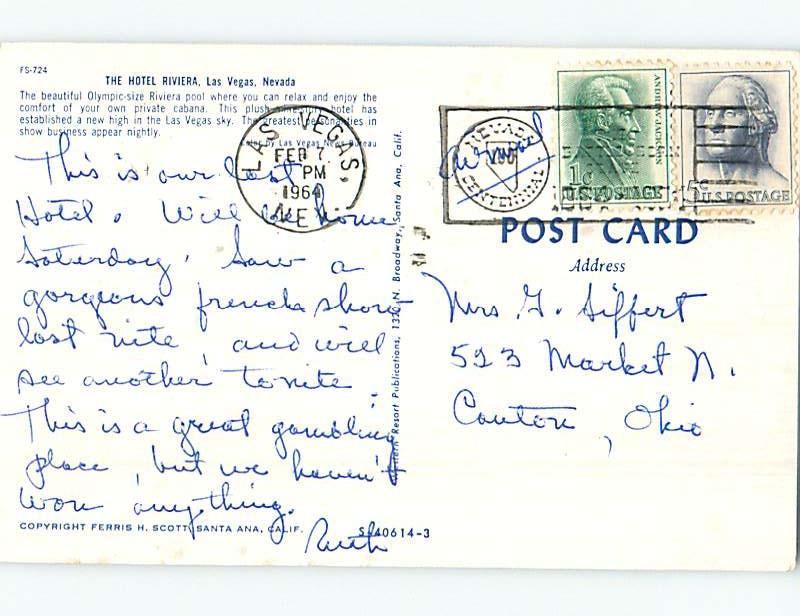 FS-724
THE HOTEL RIVIERA, Las Vegas, Nevada
The beautiful Olympic-size Riviera pool where you can relax and enjoy the
comfort of your own private cabana. This plush nine-story hotel has
established a new high in the Las Vegas sky. The greatest personalities in
show business appear nightly.
Color by Las Vegas News Bureau
This is our last
Hotel. Will be home
Saterday. Saw a
gorgeous french show
last nite, and will
see another tonite.
This is a great gambling
place, but we haven't
won anything.
Ruth
COPYRIGHT FERRIS H. SCOTT, SANTA ANA, CALIF.
S-40614-3
Western Resort Publications, 1320 N. Broadway, Santa Ana, Calif.
LAS VEGAS,
FEB 7
PM
1964
NEV.
NEVADA
CENTENNIAL
Air mail
ANDREW JACKSON
1c
U.S. POSTAGE
5c
U.S. POSTAGE
POST CARD
Address
Mrs G. Siffert
523 Market N.
Canton, Ohio